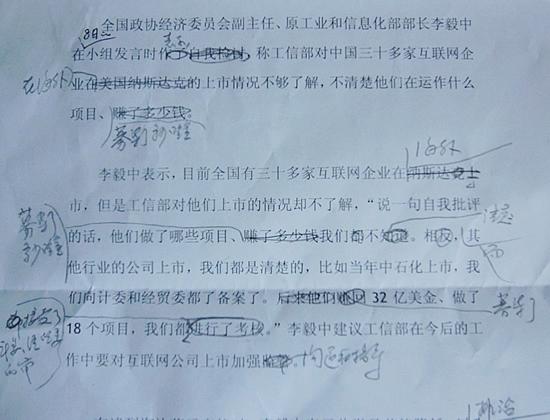 全国政协经济委员会副主任、原工业和信息化部部长李毅中
8日
在小组发言时作了自我检讨，称工信部对中国三十多家互联网企
在海外
业在美国纳斯达克的上市情况不够了解，不清楚他们在运作什么
项目、赚了多少钱。
募到多少资金
海外
李毅中表示，目前全国有三十多家互联网企业在纳斯达克上
市，但是工信部对他们上市的情况却不了解，“说一句自我批评
募到
多少资金
的话，他们做了哪些项目、赚了多少钱我们都不知道。相反，其
他行业的公司上市，我们都是清楚的，比如当年中石化上市，我
们向计委和经贸委都了备案了。后来他们赚回 32 亿美金、做了
募到
18 个项目，我们都进行了考核。”李毅中建议工信部在今后的工
的市
作中要对互联网公司上市加强
沟通和指导